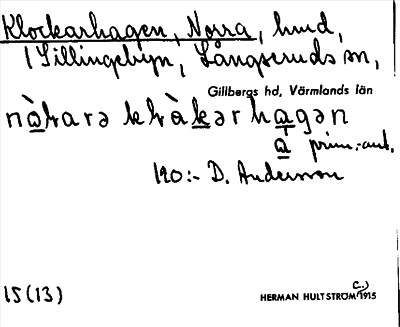 Klockarhagen, Norra, hmd,
i Sillingebyn, Långseruds sn,
Gillbergs hd, Värmlands län
prim.-ant.
190:- D. Andersson
15(13)
HERMAN HULTSTRÖM 1915